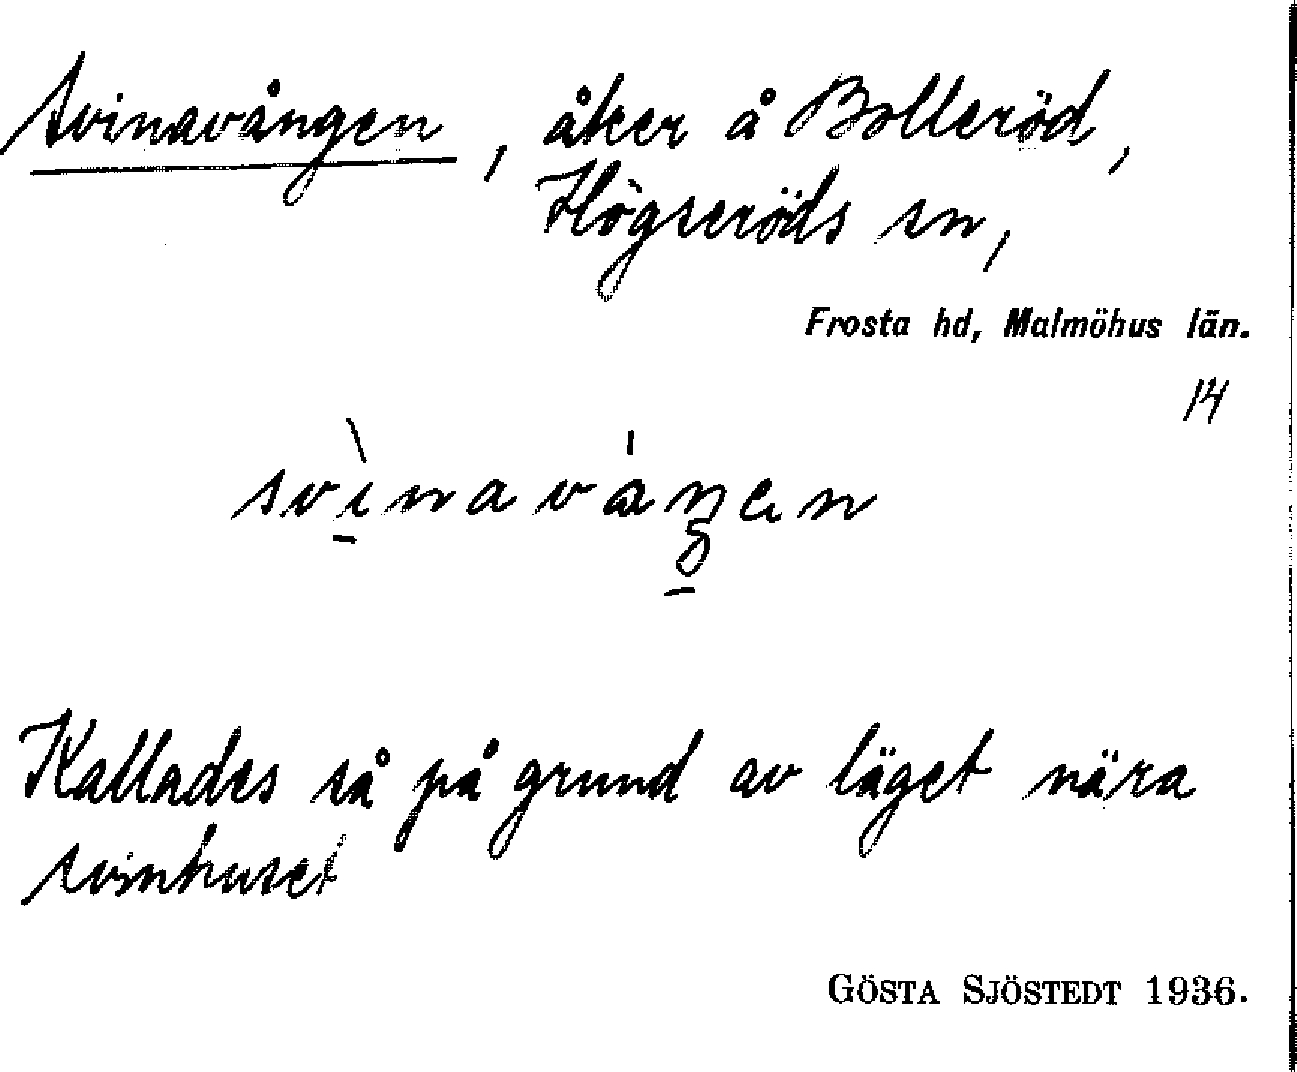 Svinavången, åker å Bolleröd,
Högseröds sn,
Frosta hd, Malmöhus län.
14
svìnavåŋen
Kallades så på grund av läget nära
svinhuset
GÖSTA SJÖSTEDT 1936.